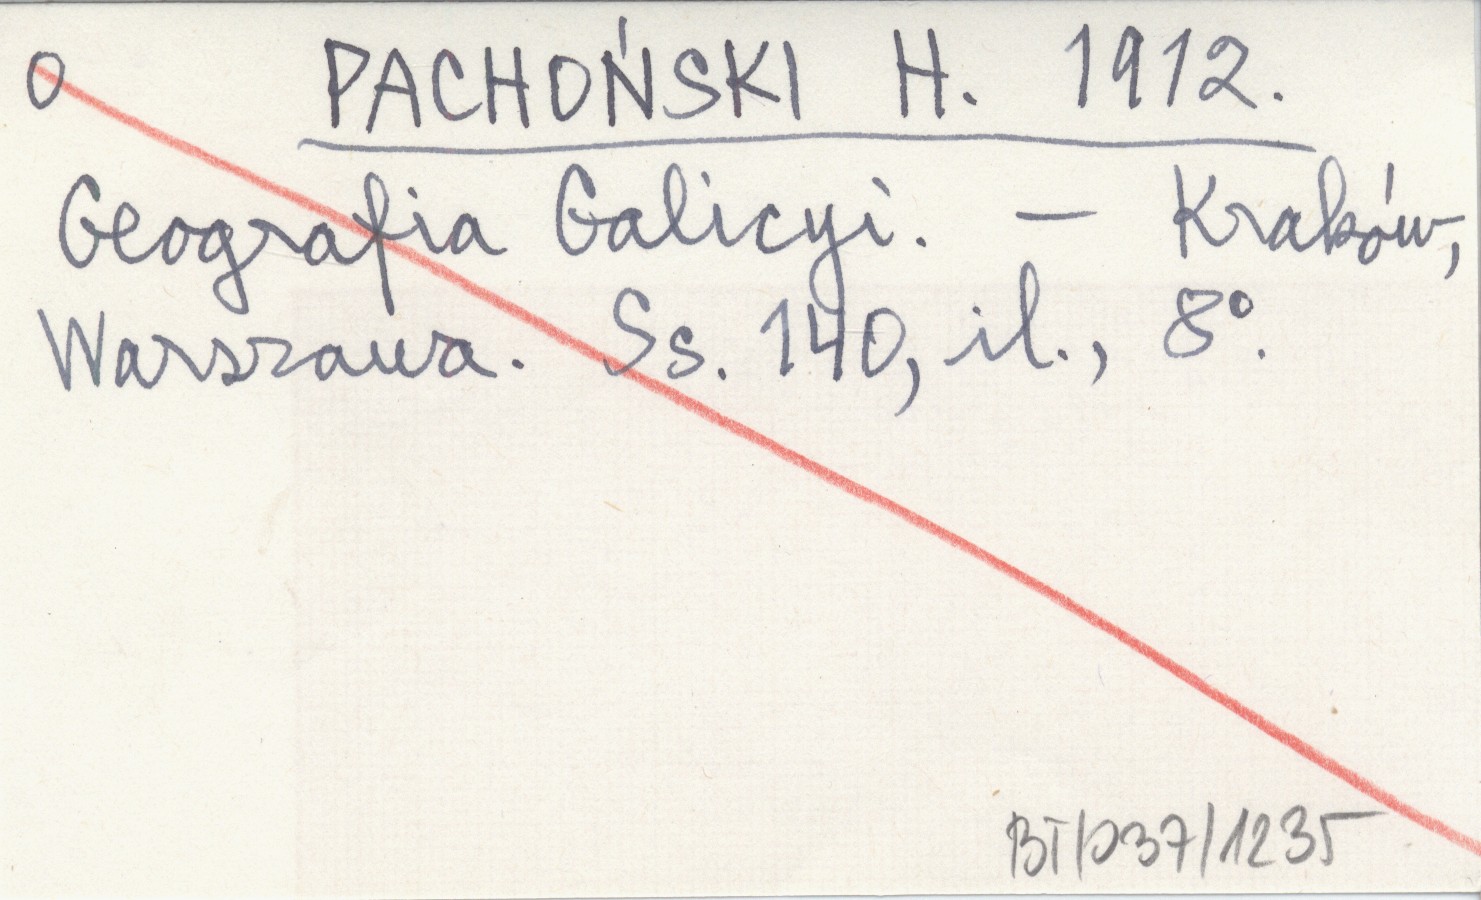 O PACHOŃSKI H. 1912.
Geografia Galicyi. — Kraków,
Warszawa. Ss. 140, il., 8°.
BT/037/1235